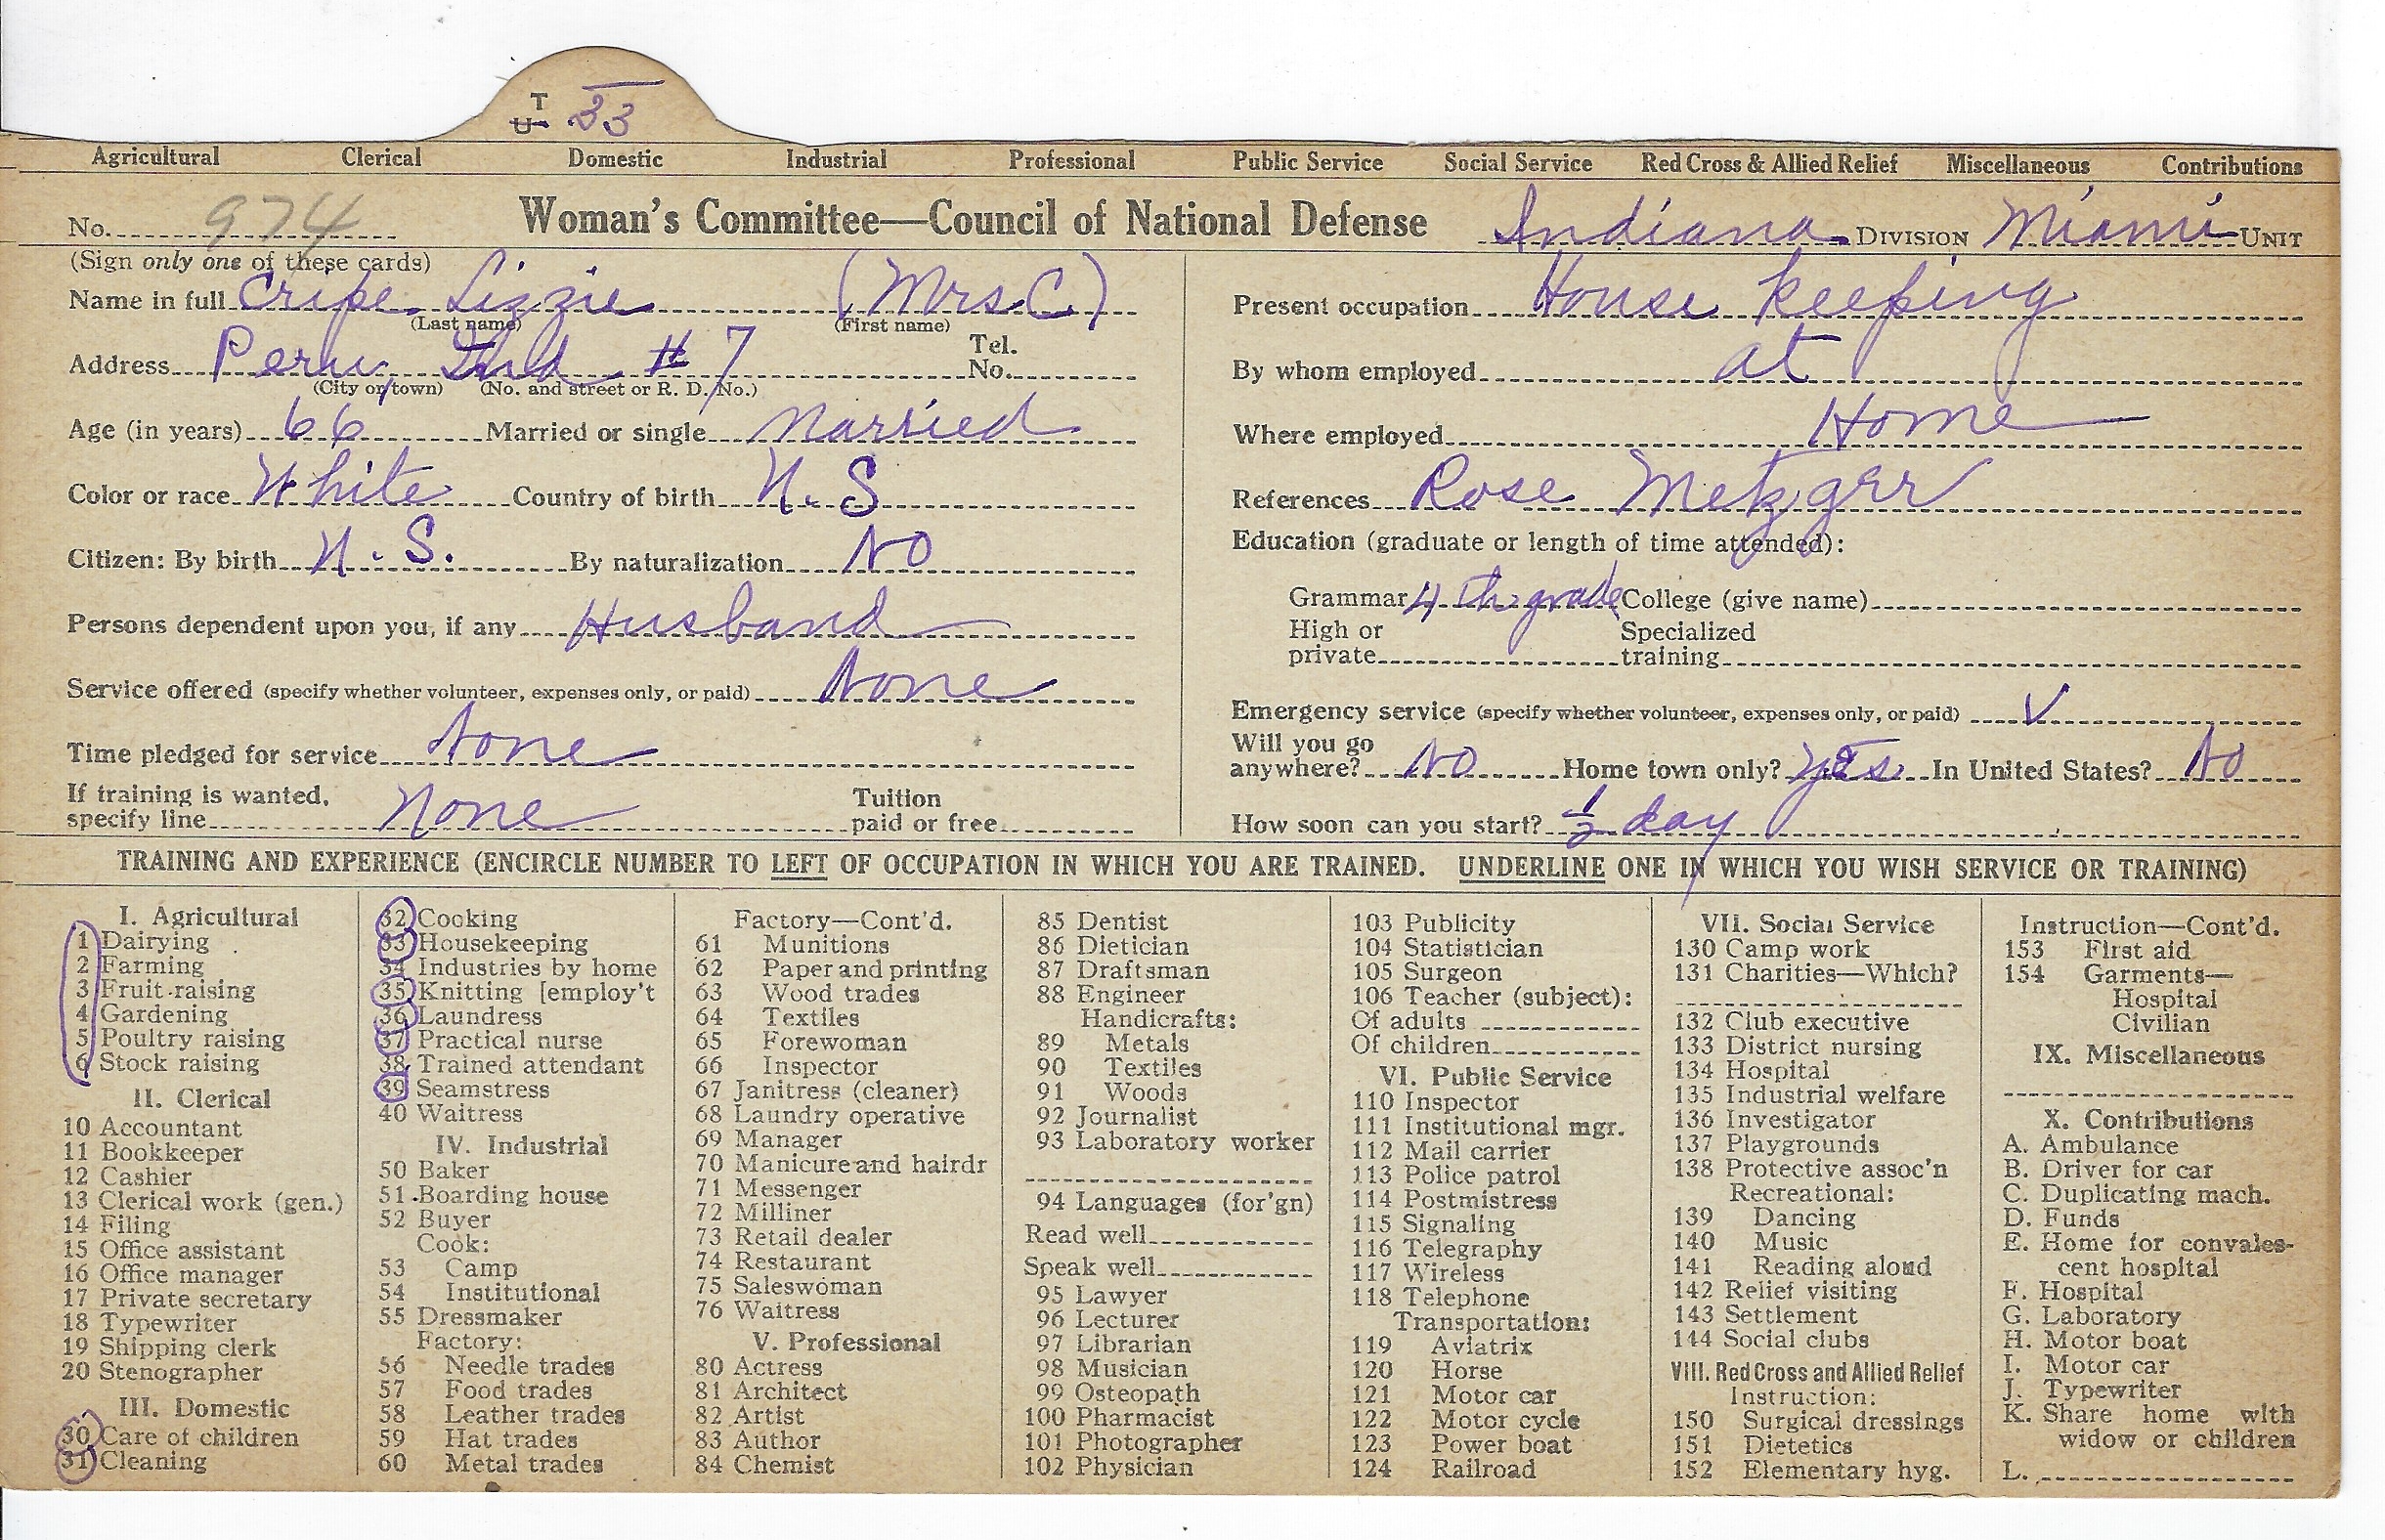 T
U 33
Agricultural Clerical Domestic Industrial Professional Public Service Social Service Red Cross & Allied Relief Miscellaneous Contributions
No. 974 Woman's Committee—Council of National Defense Indiana DIVISION Miami UNIT
(Sign only one of these cards)
Name in full Cripe Lizzie (Mrs. C.)
(Last name) (First name)
Address Peru, Ind # 7 Tel. No.
(City or town) (No. and street or R. D. No.)
Age (in years) 66 Married or single Married
Color or race White Country of birth U. S
Citizen: By birth U. S. By naturalization NO
Persons dependent upon you, if any Husband
Service offered (specify whether volunteer, expenses only, or paid) None
Time pledged for service None
If training is wanted, specify line None Tuition paid or free
Present occupation House keeping
By whom employed at
Where employed Home
References Rose Metzger
Education (graduate or length of time attended):
Grammar 4th grade College (give name)
High or private Specialized training
Emergency service (specify whether volunteer, expenses only, or paid) V
Will you go anywhere? NO Home town only? yes In United States? No
How soon can you start? 1/2 day
TRAINING AND EXPERIENCE (ENCIRCLE NUMBER TO LEFT OF OCCUPATION IN WHICH YOU ARE TRAINED. UNDERLINE ONE IN WHICH YOU WISH SERVICE OR TRAINING)
I. Agricultural
1 Dairying
2 Farming
3 Fruit raising
4 Gardening
5 Poultry raising
6 Stock raising
II. Clerical
10 Accountant
11 Bookkeeper
12 Cashier
13 Clerical work (gen.)
14 Filing
15 Office assistant
16 Office manager
17 Private secretary
18 Typewriter
19 Shipping clerk
20 Stenographer
III. Domestic
30 Care of children
31 Cleaning
32 Cooking
33 Housekeeping
34 Industries by home
35 Knitting [employ't
36 Laundress
37 Practical nurse
38 Trained attendant
39 Seamstress
40 Waitress
IV. Industrial
50 Baker
51 Boarding house
52 Buyer
Cook:
53 Camp
54 Institutional
55 Dressmaker
Factory:
56 Needle trades
57 Food trades
58 Leather trades
59 Hat trades
60 Metal trades
Factory—Cont'd.
61 Munitions
62 Paper and printing
63 Wood trades
64 Textiles
65 Forewoman
66 Inspector
67 Janitress (cleaner)
68 Laundry operative
69 Manager
70 Manicure and hairdr
71 Messenger
72 Milliner
73 Retail dealer
74 Restaurant
75 Saleswoman
76 Waitress
V. Professional
80 Actress
81 Architect
82 Artist
83 Author
84 Chemist
85 Dentist
86 Dietician
87 Draftsman
88 Engineer
Handicrafts:
89 Metals
90 Textiles
91 Woods
92 Journalist
93 Laboratory worker
94 Languages (for'gn)
Read well
Speak well
95 Lawyer
96 Lecturer
97 Librarian
98 Musician
99 Osteopath
100 Pharmacist
101 Photographer
102 Physician
103 Publicity
104 Statistician
105 Surgeon
106 Teacher (subject):
Of adults
Of children
VI. Public Service
110 Inspector
111 Institutional mgr.
112 Mail carrier
113 Police patrol
114 Postmistress
115 Signaling
116 Telegraphy
117 Wireless
118 Telephone
Transportation:
119 Aviatrix
120 Horse
121 Motor car
122 Motor cycle
123 Power boat
124 Railroad
VII. Social Service
130 Camp work
131 Charities—Which?
132 Club executive
133 District nursing
134 Hospital
135 Industrial welfare
136 Investigator
137 Playgrounds
138 Protective assoc'n
Recreational:
139 Dancing
140 Music
141 Reading aloud
142 Relief visiting
143 Settlement
144 Social clubs
VIII. Red Cross and Allied Relief
Instruction:
150 Surgical dressings
151 Dietetics
152 Elementary hyg.
Instruction—Cont'd.
153 First aid
154 Garments—
Hospital
Civilian
IX. Miscellaneous
X. Contributions
A. Ambulance
B. Driver for car
C. Duplicating mach.
D. Funds
E. Home for convales-
cent hospital
F. Hospital
G. Laboratory
H. Motor boat
I. Motor car
J. Typewriter
K. Share home with
widow or children
L.